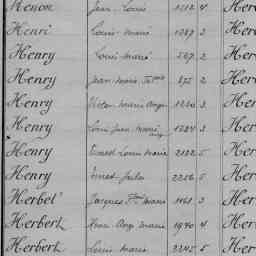 Henri Louis Marie 1287 3 Her
Henry Louis Marie 587 2 Her
Henry Jean Marie 875 2 Her
Henry Victor Marie Ange 1220 3 Her
Henry Louis Jean Marie 1284 3 Her
Henry Ernest Louis Marie 2132 5 Her
Henry Ernest Jules 2256 5 Her
Herbel Jacques 1461 3 Her
Herbert Jean Ange Marie 1970 4 Her
Herbert Louis Marie 2245 5 Her